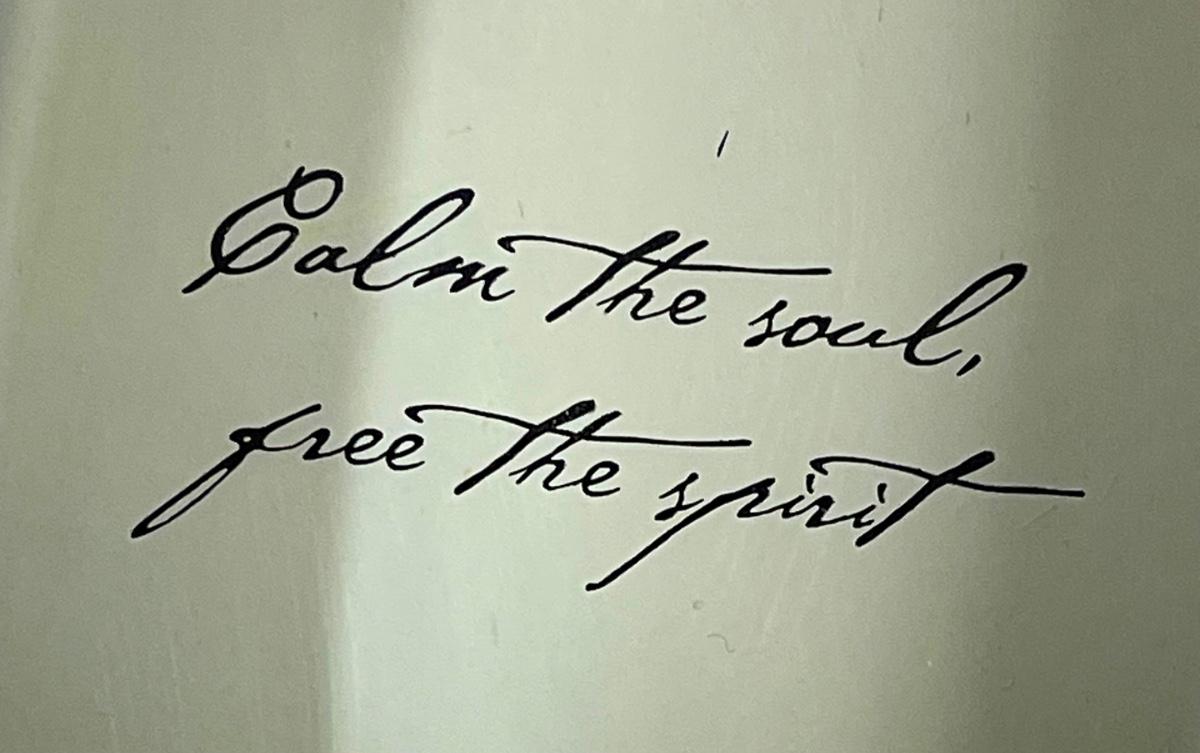 Calm the soul,
free the spirit